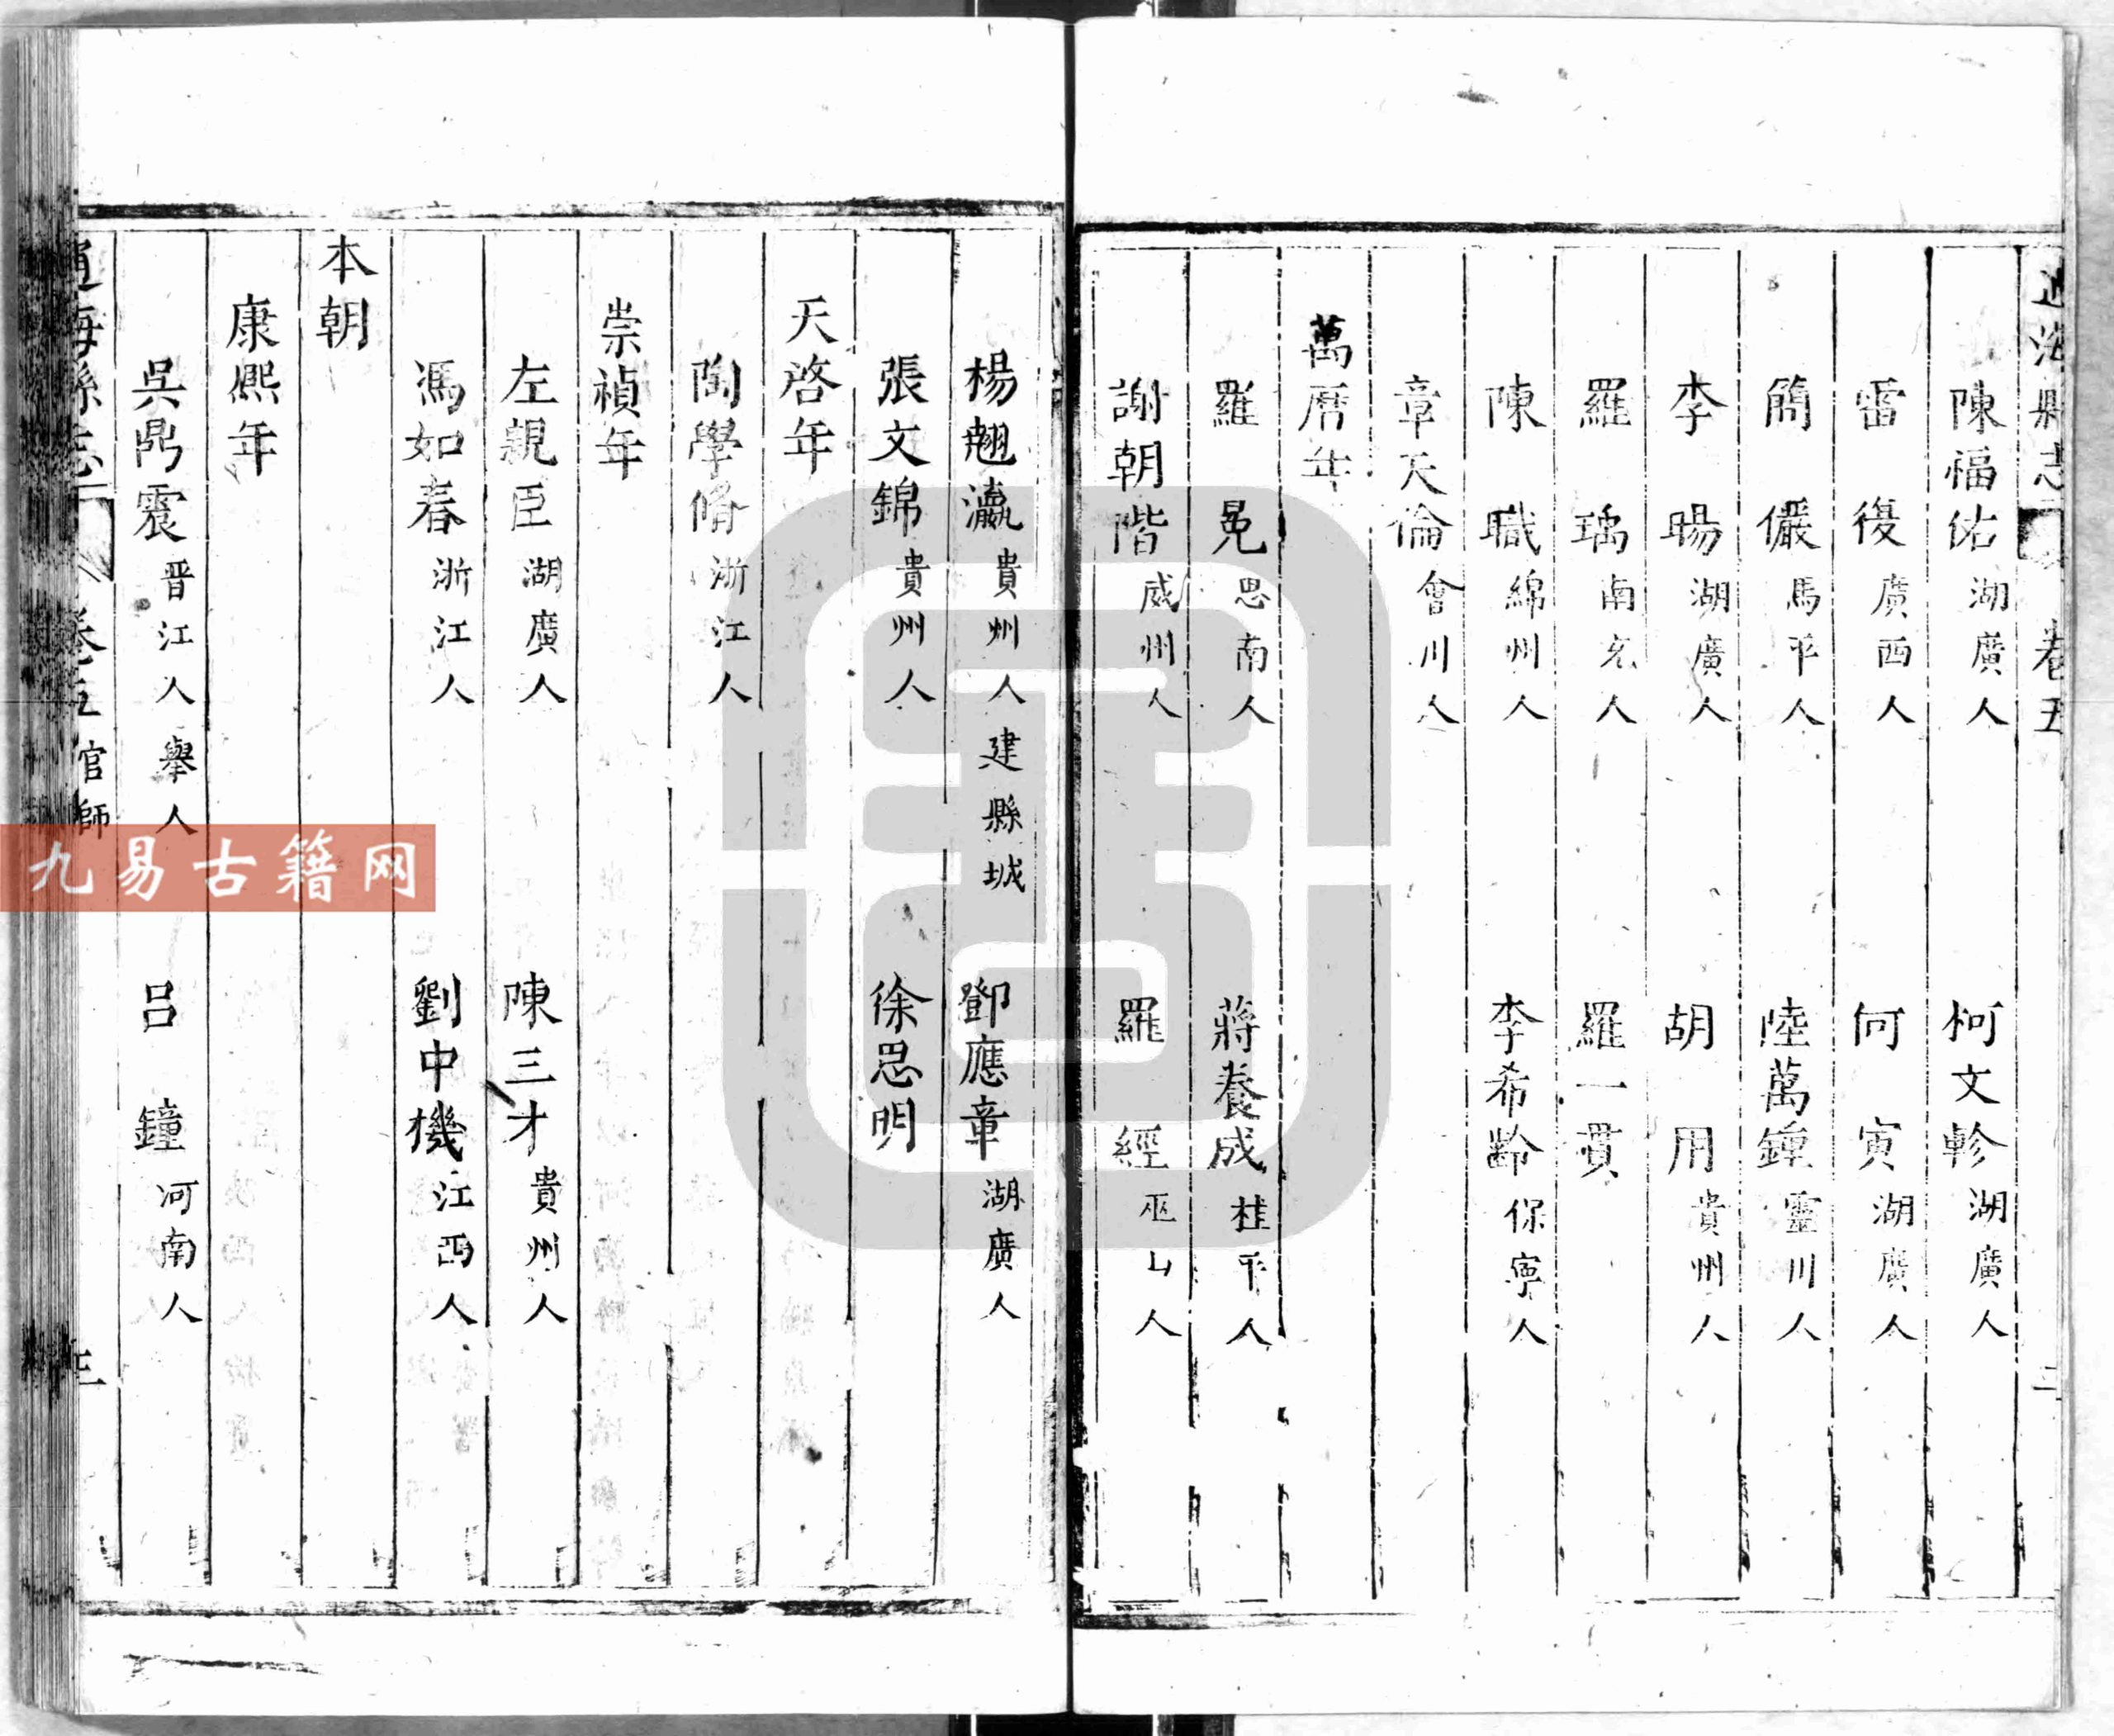 通海縣志 卷五
陳福佑湖廣人 柯文軫湖廣人
雷復廣西人 何寅湖廣人
簡儼馬平人 陸萬鍾靈川人
李暘湖廣人 胡用貴州人
羅瑀南充人 羅一貫
陳職綿州人 李希齡保寧人
章天倫會川人
萬曆年
羅冕思南人 蔣養成桂平人
謝朝階威州人 羅經巫山人
楊翹瀛貴州人建縣城 鄧應章湖廣人
張文錦貴州人 徐思明
天啓年
陶學脩浙江人
崇禎年
左親臣湖廣人 陳三才貴州人
馮如春浙江人 劉中機江西人
本朝
康熙年
吳鼎震晋江人舉人 呂鐘河南人
通海縣志 卷五 官師 三
九易古籍网